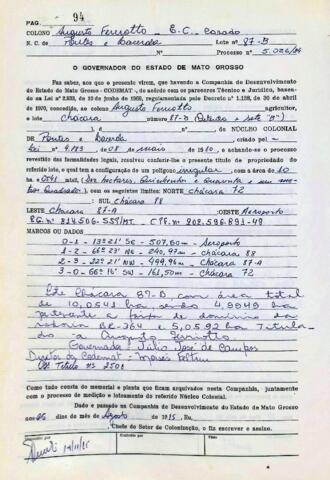 PAG. 94
COLONO Augusto Ferriotto - E.C. Casado
N. C. de Pontes e Lacerda Lote nº 87-B
Processo nº 5.026/84
O GOVERNADOR DO ESTADO DE MATO GROSSO
Faz saber, aos que o presente virem, que havendo a Companhia de Desenvolvimento
do Estado de Mato Grosso - CODEMAT -, de acordo com os pareceres Técnico e Jurídico, basea-
do na Lei nº 2.833, de 20 de junho de 1968, regulamentada pelo Decreto nº 1.138, de 30 de abril
de 1970, concedido, ao colono Augusto Ferriotto agricultor,
o lote Chácara número 87-B (Oitenta e sete "B")
do NÚCLEO COLONIAL
DE Pontes e Lacerda criado pela
Lei nº 4.183 de 08 de maio 1980, e achando-se o processo
revestido das formalidades legais, resolveu conferir-lhe o presente título de propriedade do
referido lote, o qual tem a configuração de um polígono irregular, com a área de 10
ha. 0541 mts2.
tros Quadrados), com os seguintes limites: NORTE Chácara 72
SUL Chácara 88
LESTE Chácara 87-A OESTE Aeroporto
MARCOS OU DADOS
0-1 - 13º21' SE - 507,60m - Aeroporto
1-2 - 66º23' NE - 240,97m - chácara 88
- 499,96m - Chácara 87-A
3-0 - 66º16' SW - 161,50m - Chácara 72
Este Chácara 87-B com área total
de 10,0541 ha sendo 4,9949 ha
pertencente a faixa de domínio da
rodovia BR-364 e 5,0592 ha Titula-
do a Augusto Ferriotto
Governador: Júlio José de Campos
Diretor da Codemat: Moisés Feltrin
Nº Título nº 2501
Como tudo consta do memorial e planta que ficam arquivados nesta Companhia, juntamente
com o processo de medição e loteamento do referido Núcleo Colonial.
Dado e passado na Companhia de Desenvolvimento do Estado de Mato Grosso
aos 06 dias do mês de Agosto de 1985. Eu,
Chefe do Setor de Colonização, o fiz escrever e assino.